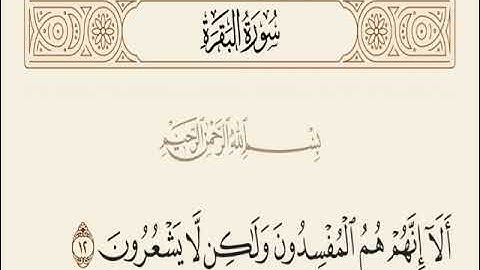 سُورَةُ البَقَرَةِ
بِسْمِ اللَّهِ الرَّحْمَٰنِ الرَّحِيمِ
أَلَآ إِنَّهُمْ هُمُ ٱلْمُفْسِدُونَ وَلَٰكِن لَّا يَشْعُرُونَ ١٢